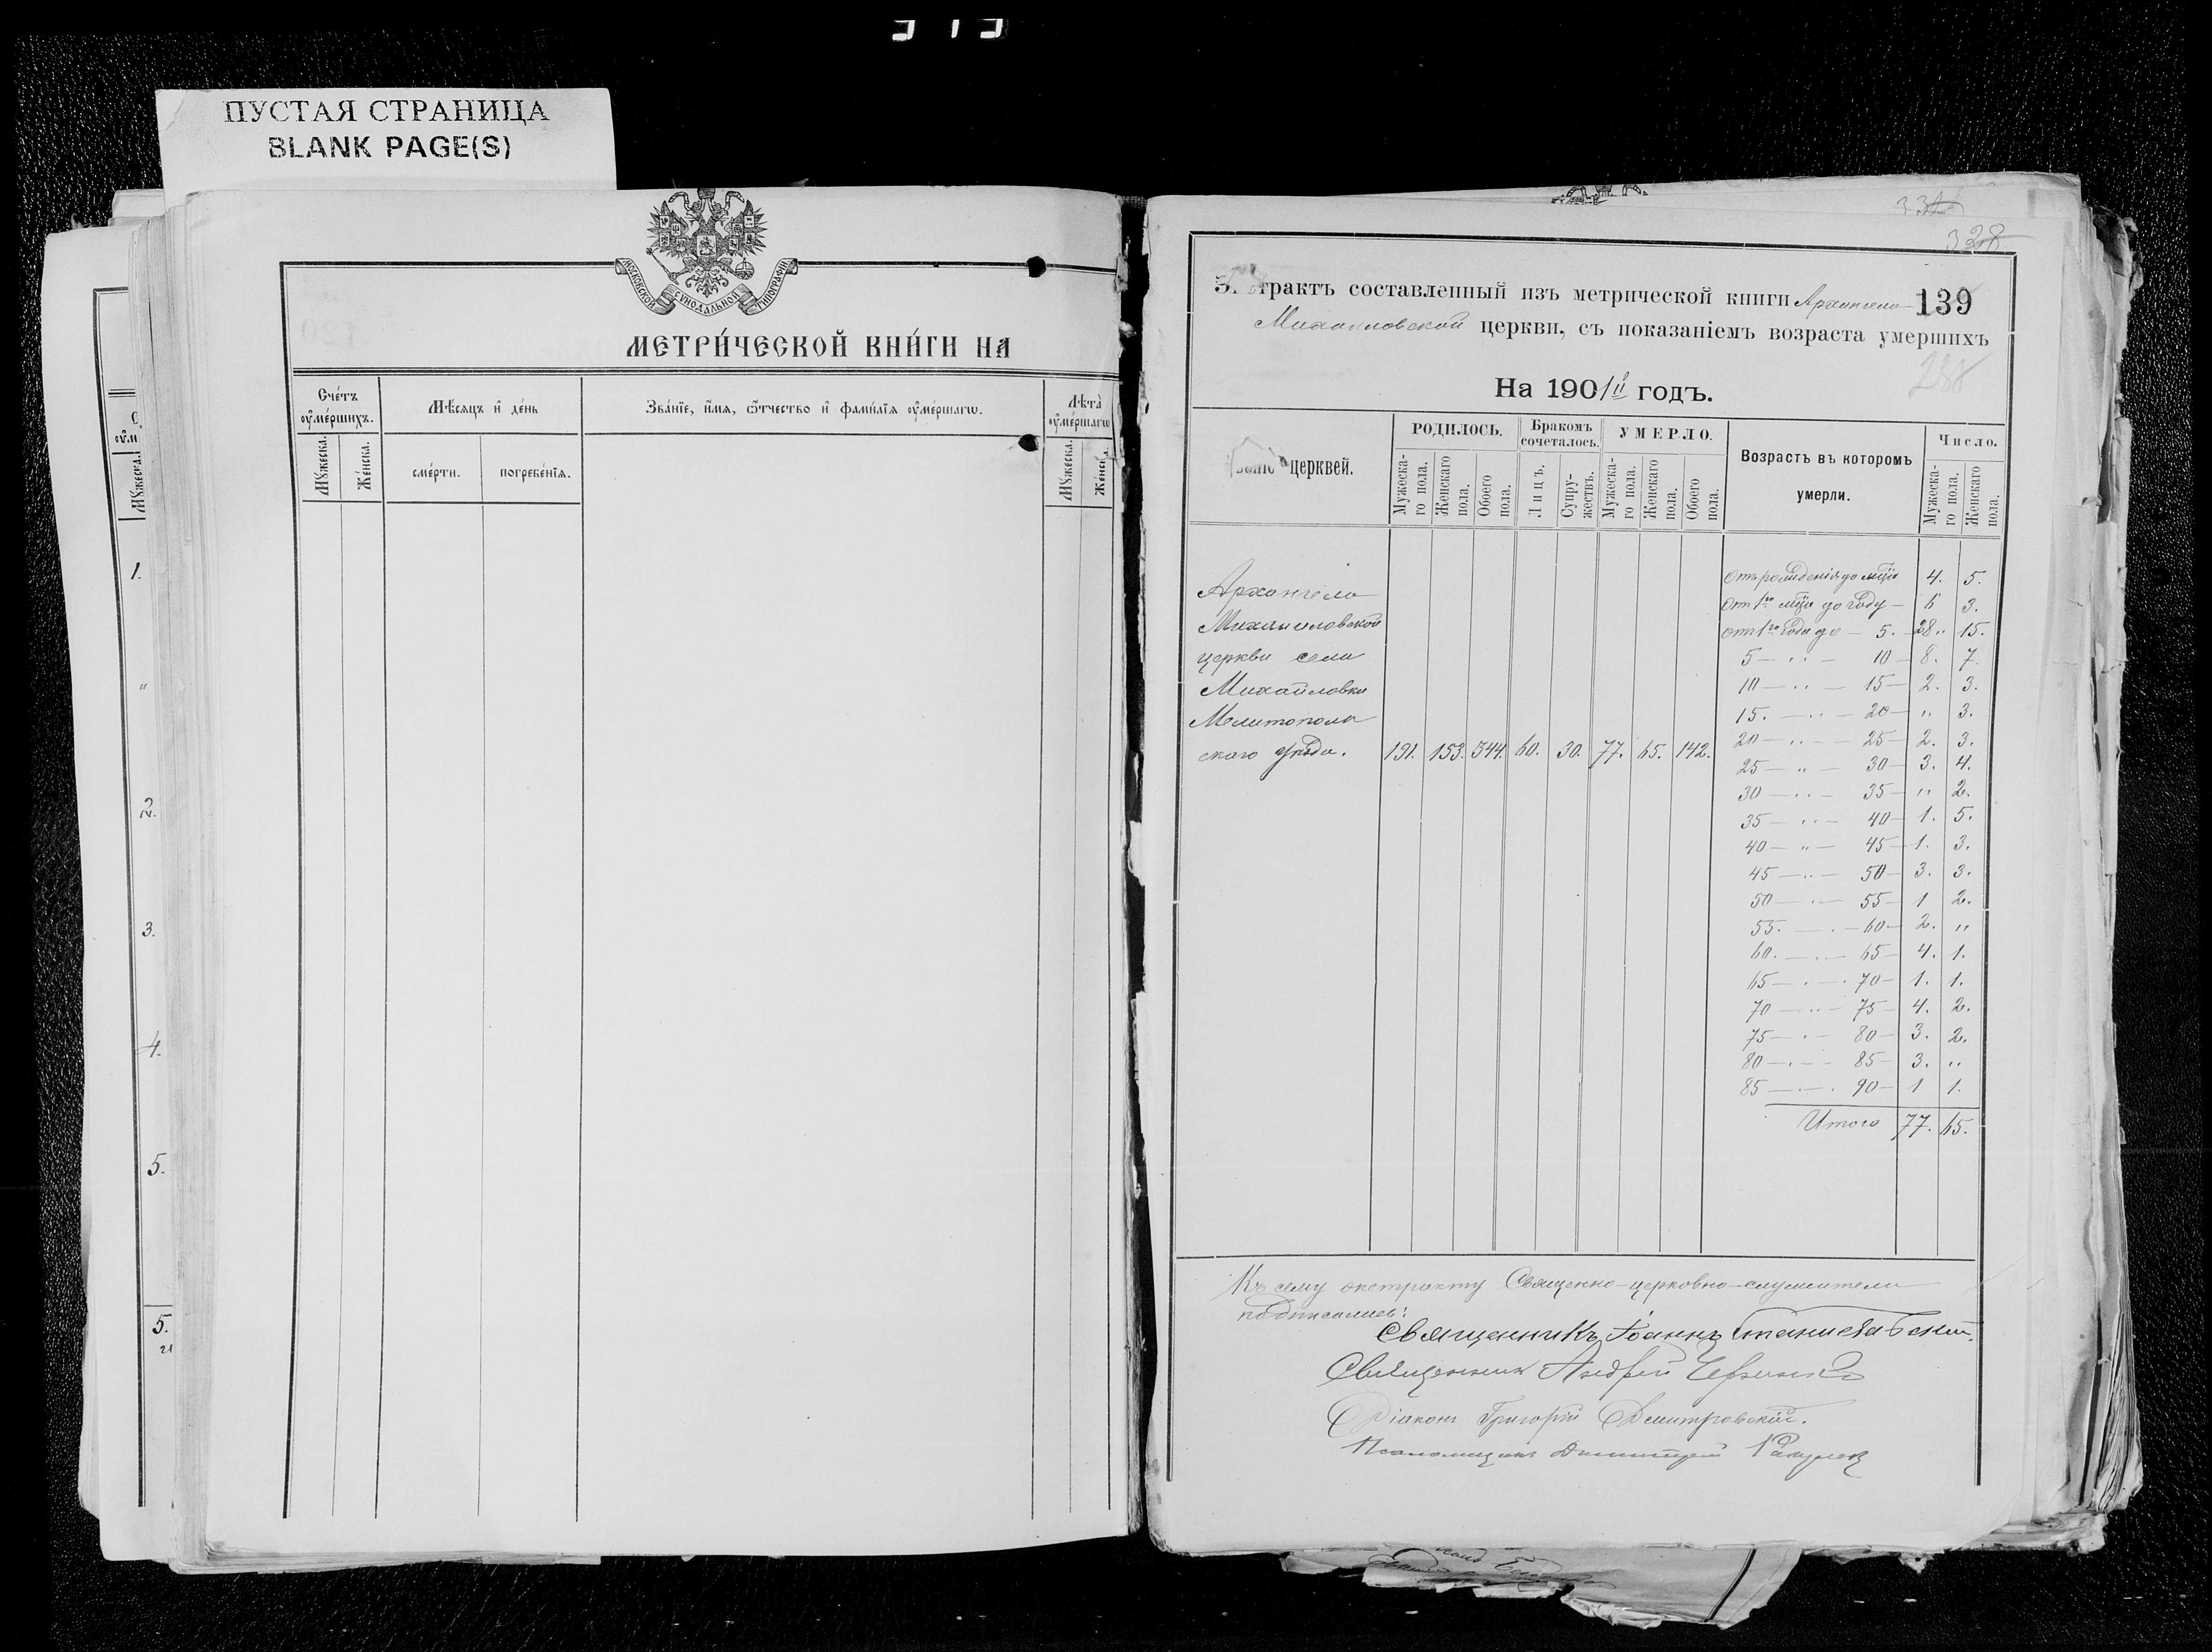 ПУСТАЯ СТРАНИЦА
BLANK PAGE(S)
МОСКОВСКОЙ СѴНОДАЛЬНОЙ ТИПОГРАФІИ
МЕТРИ́ЧЕСКОЙ КНИ́ГИ НА
Сче́тъ ᲂу҆ме́ршихъ.
Мꙋ́жеска.
Же́нска.
Мѣ́сяцъ и҆ де́нь
сме́рти.
погребе́нїѧ.
Зва́нїе, и҆́мѧ, ѻ҆́тчество и҆ фами́лїѧ ᲂу҆ме́ршагѡ.
Лѣ́та ᲂу҆ме́ршагѡ
Мꙋ́жеска.
Же́нска.
1.
"
2.
3.
4.
5.
5.
328
трактъ составленный изъ метрической книги Архангело- 139
Михайловской церкви, съ показаніемъ возраста умершихъ
На 1901й годъ.
церквей.
РОДИЛОСЬ.
Мужеска-го пола.
Женскаго пола.
Обоего пола.
Бракомъ сочеталось.
Лицъ.
Супру-жествъ.
УМЕРЛО.
Мужеска-го пола.
Женскаго пола.
Обоего пола.
Возрастъ въ которомъ умерли.
Число.
Мужеска-го пола.
Женскаго пола.
Архангело
Михаиловской
церкви села
Михайловки
Мелитополь
скаго уѣзда. 191. 153. 344. 60. 30. 77. 65. 142.
Отъ рожденія до мца 4. 5.
От 1го мца до году - 6 3.
от 1го года до - 5. - 28 " 15.
5 — " — 10 — 8. 7.
10 — " — 15 — 2. 3.
15. — " — 20 — " 3.
20 — " — 25 — 2. 3.
25 — " — 30 — 3. 4.
30 — " — 35 — " 2.
35 — " — 40 — 1. 5.
40 — " — 45 — 1. 3.
45 — " — 50 — 3. 3.
50 — " — 55 — 1 2.
55. — " — 60 — 2. "
60. — " — 65 — 4. 1.
65 — " — 70 — 1. 1.
70 — " — 75 — 4. 2.
75 — " — 80 — 3. 2.
80 — " — 85 — 3. "
85 — " — 90 — 1 1.
Итого 77. 65.
Къ сему экстракту Священно-церковно-служители
подписались:
Священникъ Іоаннъ Станиславскій.
Священник Андрей
Діаконъ Григорій Дмитровскій.
Псаломщикъ Димитрій